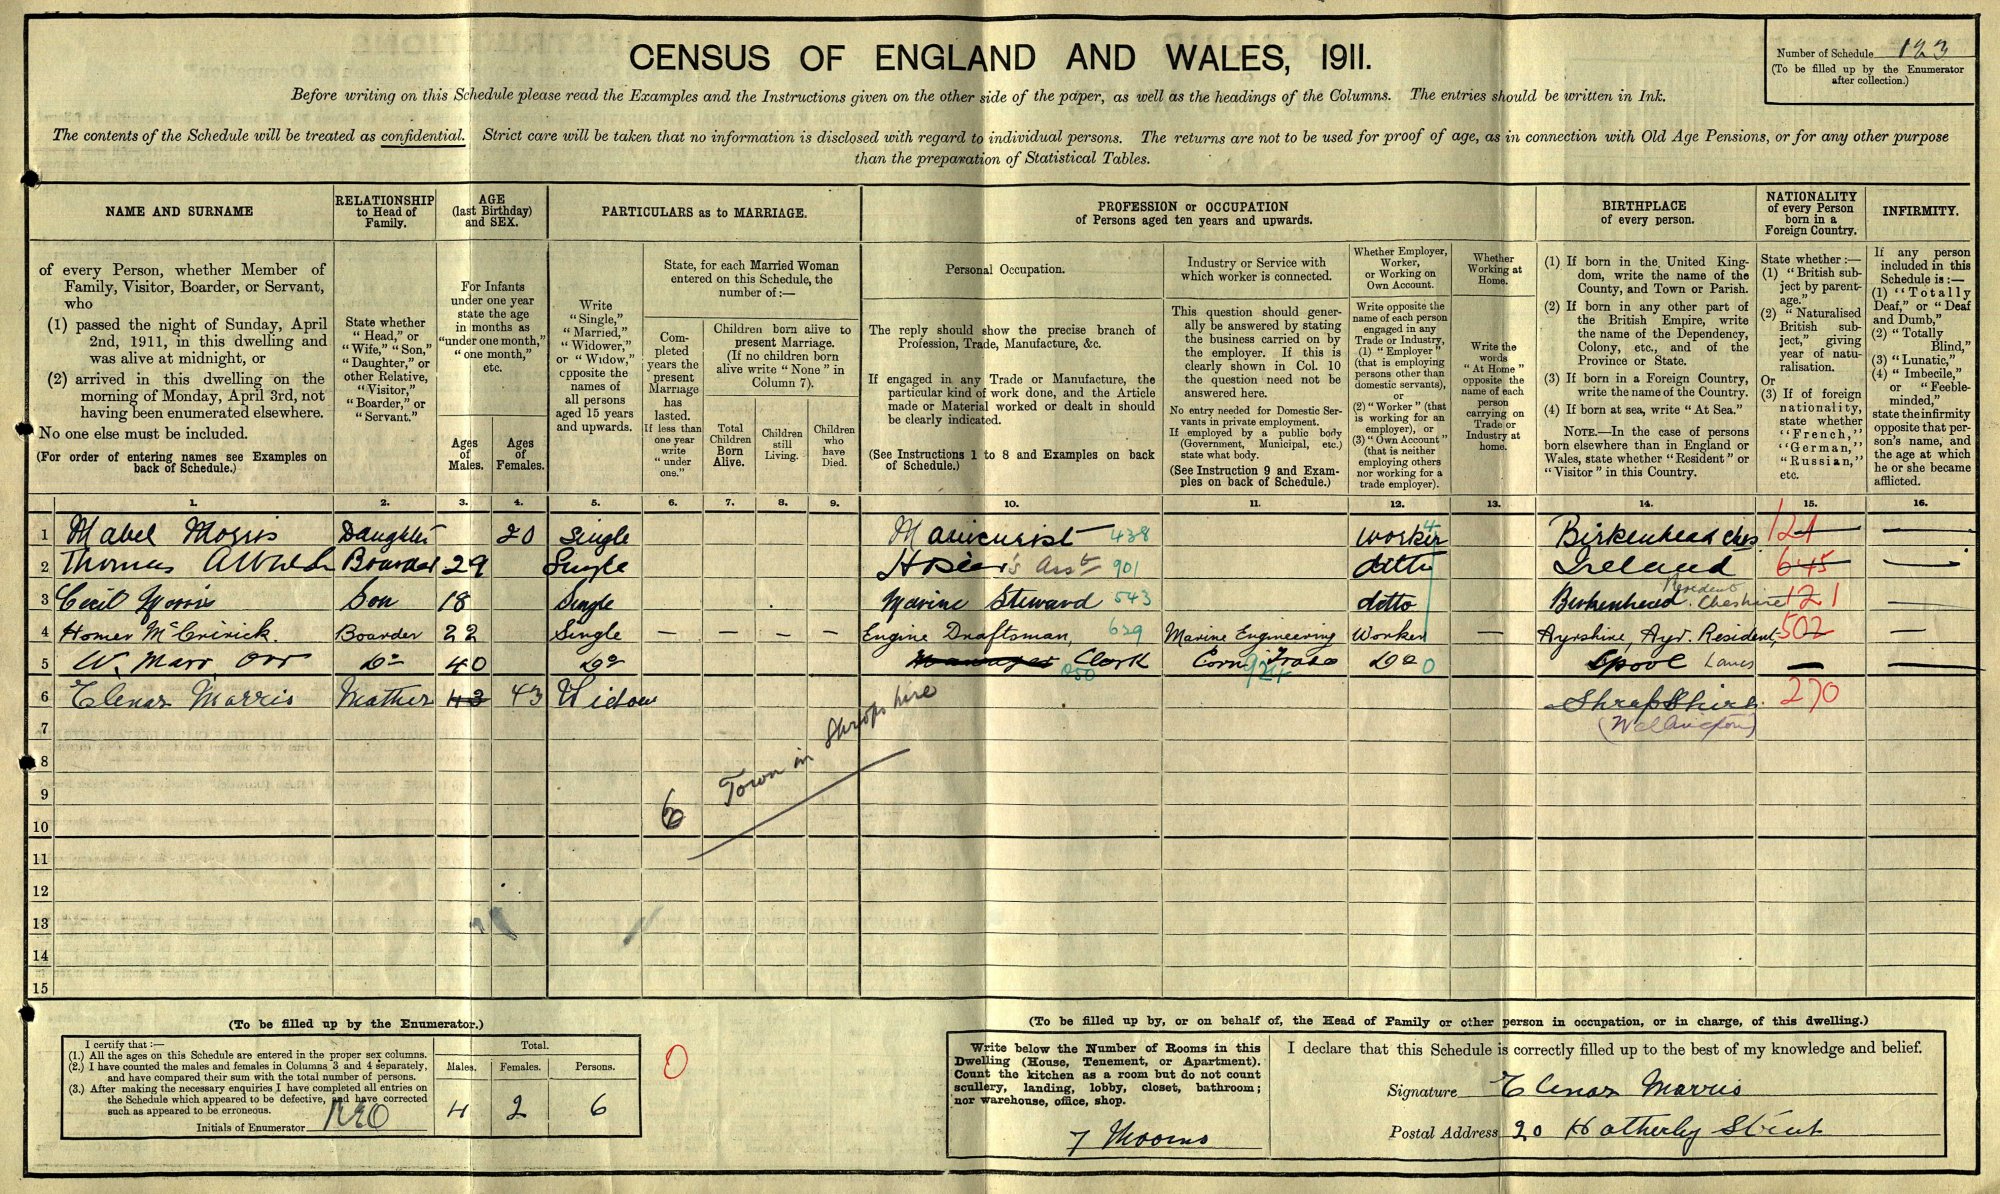 CENSUS OF ENGLAND AND WALES, 1911.
Number of Schedule 123
(To be filled up by the Enumerator after collection.)
Before writing on this Schedule please read the Examples and the Instructions given on the other side of the paper, as well as the headings of the Columns. The entries should be written in Ink.
The contents of the Schedule will be treated as confidential. Strict care will be taken that no information is disclosed with regard to individual persons. The returns are not to be used for proof of age, as in connection with Old Age Pensions, or for any other purpose
than the preparation of Statistical Tables.
NAME AND SURNAME
RELATIONSHIP to Head of Family.
AGE (last Birthday) and SEX.
PARTICULARS as to MARRIAGE.
PROFESSION or OCCUPATION of Persons aged ten years and upwards.
BIRTHPLACE of every person.
NATIONALITY of every Person born in a Foreign Country.
INFIRMITY.
of every Person, whether Member of Family, Visitor, Boarder, or Servant, who
(1) passed the night of Sunday, April 2nd, 1911, in this dwelling and was alive at midnight, or
(2) arrived in this dwelling on the morning of Monday, April 3rd, not having been enumerated elsewhere.
No one else must be included.
(For order of entering names see Examples on back of Schedule.)
State whether "Head," or "Wife," "Son," "Daughter," or other Relative, "Visitor," "Boarder," or "Servant."
For Infants under one year state the age in months as "under one month," "one month," etc.
Ages of Males.
Ages of Females.
Write "Single," "Married," "Widower," or "Widow," opposite the names of all persons aged 15 years and upwards.
State, for each Married Woman entered on this Schedule, the number of:—
Completed years the present Marriage has lasted. If less than one year write "under one."
Children born alive to present Marriage. (If no children born alive write "None" in Column 7).
Total Children Born Alive.
Children still Living.
Children who have Died.
Personal Occupation.
The reply should show the precise branch of Profession, Trade, Manufacture, &c.
If engaged in any Trade or Manufacture, the particular kind of work done, and the Article made or Material worked or dealt in should be clearly indicated.
(See Instructions 1 to 8 and Examples on back of Schedule.)
Industry or Service with which worker is connected.
This question should generally be answered by stating the business carried on by the employer. If this is clearly shown in Col. 10 the question need not be answered here.
No entry needed for Domestic Servants in private employment.
If employed by a public body (Government, Municipal, etc.) state what body.
(See Instruction 9 and Examples on back of Schedule.)
Whether Employer, Worker, or Working on Own Account.
Write opposite the name of each person engaged in any Trade or Industry, (1) "Employer" (that is employing persons other than domestic servants), or (2) "Worker" (that is working for an employer), or (3) "Own Account" (that is neither employing others nor working for a trade employer).
Whether Working at Home.
Write the words "At Home" opposite the name of each person carrying on Trade or Industry at home.
(1) If born in the United Kingdom, write the name of the County, and Town or Parish.
(2) If born in any other part of the British Empire, write the name of the Dependency, Colony, etc., and of the Province or State.
(3) If born in a Foreign Country, write the name of the Country.
(4) If born at sea, write "At Sea."
NOTE.—In the case of persons born elsewhere than in England or Wales, state whether "Resident" or "Visitor" in this Country.
State whether:—
(1) "British subject by parentage."
(2) "Naturalised British subject," giving year of naturalisation.
Or
(3) If of foreign nationality, state whether "French," "German," "Russian," etc.
If any person included in this Schedule is:—
(1) "Totally Deaf," or "Deaf and Dumb,"
(2) "Totally Blind,"
(3) "Lunatic,"
(4) "Imbecile," or "Feeble-minded,"
state the infirmity opposite that person's name, and the age at which he or she became afflicted.
1. 2. 3. 4. 5. 6. 7. 8. 9. 10. 11. 12. 13. 14. 15. 16.
1 Mabel Morris Daughter 20 Single Manicurist 438 worker 4 Birkenhead Ches 121 —
2 Thomas Boarder 29 Single Hosier's Asst 901 ditto Ireland 645 —
3 Cecil Morris Son 18 Single Marine Steward 543 ditto Birkenhead. Cheshire Resident 121 —
4 Homer McCririck. Boarder 22 Single — — — — Engine Draftsman, 629 Marine Engineering Worker — Ayrshire, Ayr. Resident, 502 —
5 W. Marr Orr Do 40 Do Manager Clerk 050 Corn Trade 924 Do 0 Lpool Lancs — —
6 Elenor Morris Mother 43 43 Widow Shropshire 270
(Wellington)
7
8
9
10
11
12
13
14
15
Town in Shropshire
6
(To be filled up by the Enumerator.)
I certify that:—
(1.) All the ages on this Schedule are entered in the proper sex columns.
(2.) I have counted the males and females in Columns 3 and 4 separately, and have compared their sum with the total number of persons.
(3.) After making the necessary enquiries I have completed all entries on the Schedule which appeared to be defective, and have corrected such as appeared to be erroneous.
Initials of Enumerator
Total.
Males. Females. Persons.
4 2 6
0
(To be filled up by, or on behalf of, the Head of Family or other person in occupation, or in charge, of this dwelling.)
Write below the Number of Rooms in this Dwelling (House, Tenement, or Apartment). Count the kitchen as a room but do not count scullery, landing, lobby, closet, bathroom; nor warehouse, office, shop.
7 Rooms
I declare that this Schedule is correctly filled up to the best of my knowledge and belief.
Signature Elenor Morris
Postal Address 20 Hatherley Street